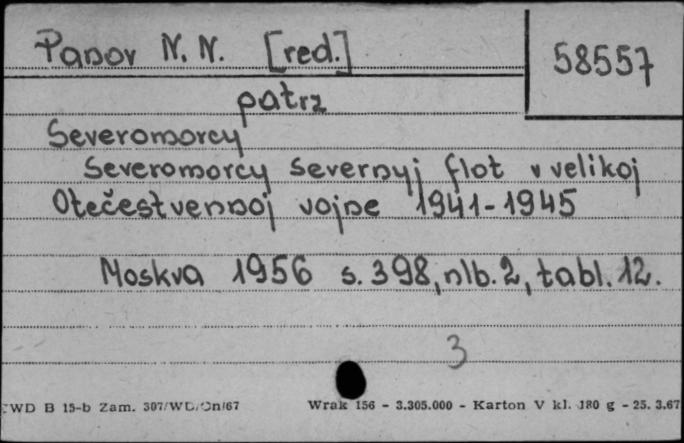 Panov N. N. [red.]
58557
patrz
Severomorcy
Severomorcy Severnyj flot v velikoj
Otečestvennoj vojne 1941-1945
Moskva 1956 s. 398, nlb. 2, tabl. 12.
3
WD B 15-b Zam. 307/WD/Dn/67 Wrak 156 - 3.305.000 - Karton V kl. 180 g - 25. 3.67